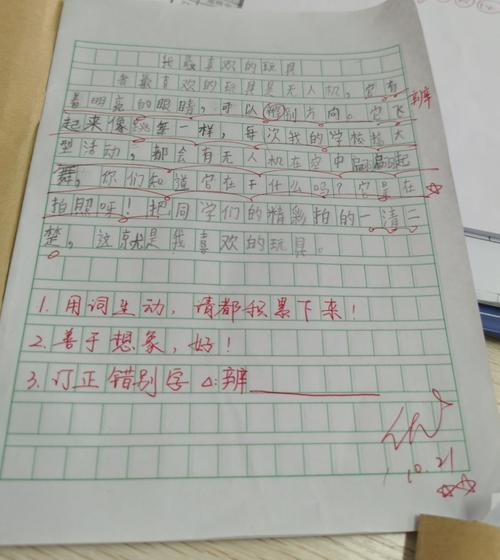 我最喜欢的玩具
我最喜欢的玩具是无人机,它有
着明亮的眼睛,可以辨别方向。它飞
辨
起来像跳舞一样,每次我的学校搞大
型活动,都会有无人机在空中翩翩起
舞,你们知道它在干什么吗?它是在
拍照呀!把同学们的精彩拍的一清二
楚,这就是我喜欢的玩具。
1.用词生动,请都积累下来!
2.善于想象,好!
3.订正错别字 △:辨
10.21